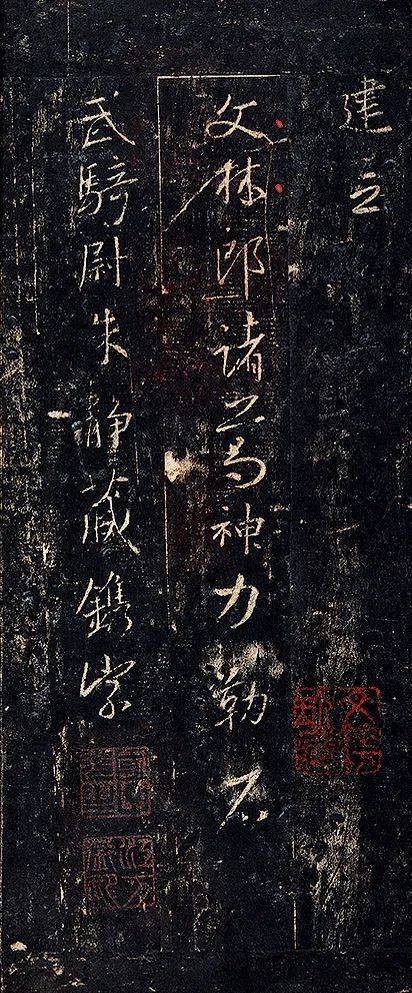 建立
文林郎諸葛神力勒石
武騎尉朱靜藏鐫字